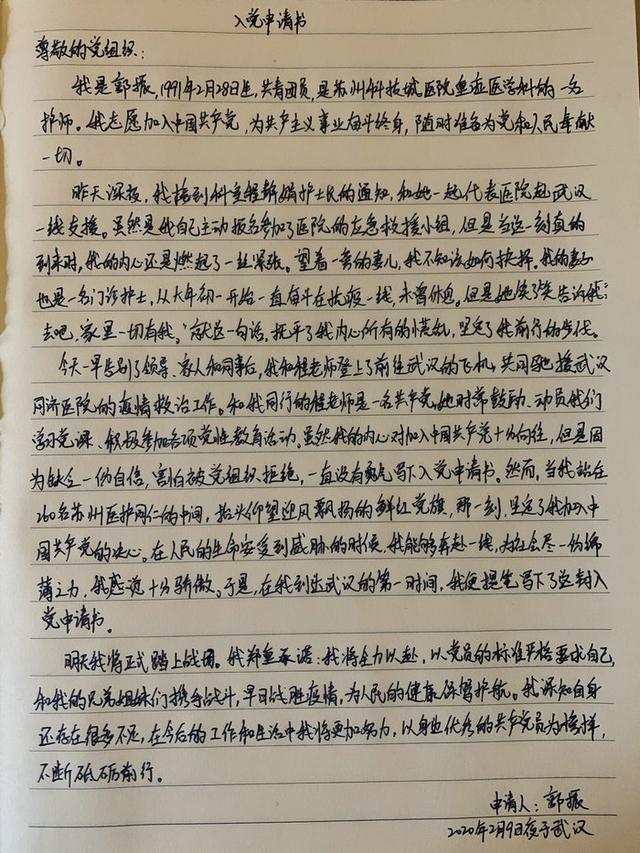 入党申请书
尊敬的党组织：
我是郭振，1991年2月28日生，共青团员，是苏州科技城医院重症医学科的一名
护师。我志愿加入中国共产党，为共产主义事业奋斗终身，随时准备为党和人民奉献
一切。
昨天深夜，我接到科室程静娟护士长的通知，和她一起代表医院赴武汉
一线支援。虽然是我自己主动报名参加了医院的应急救援小组，但是当这一刻真的
到来时，我的内心还是燃起了一丝紧张。望着一旁的妻儿，我不知该如何抉择。我的妻子
也是一名门诊护士，从大年初一开始一直奋斗在抗疫一线，未曾休息。但是她笑了笑告诉我：“
去吧，家里一切有我。”就这一句话，抚平了我内心所有的慌乱，坚定了我前行的步伐。
今天一早告别了领导、家人和同事后，我和程老师登上了前往武汉的飞机，共同驰援武汉
同济医院的疫情救治工作。和我同行的程老师是一名共产党，她时常鼓励、动员我们
学习党课、积极参加各项党性教育活动。虽然我的内心对加入中国共产党十分向往，但是因
为缺乏一份自信，害怕被党组织拒绝，一直没有勇气写下入党申请书。然而，当我站在
260名苏州医护同仁的中间，抬头仰望迎风飘扬的鲜红党旗，那一刻，坚定了我加入中
国共产党的决心。在人民的生命安受到威胁的时候，我能够奔赴一线，对社会尽一份绵
薄之力，我感觉十分骄傲。于是，在我到达武汉的第一时间，我便提笔写下了这封入
党申请书。
明天我将正式踏上战场。我郑重承诺：我将全力以赴，以党员的标准严格要求自己，
和我的兄弟姐妹们携手战斗，早日战胜疫情，为人民的健康保驾护航。我深知自身
还存在很多不足，在今后的工作和生活中我将更加努力，以身边优秀的共产党员为榜样，
不断砥砺前行。
申请人：郭振
2020年2月9日夜于武汉